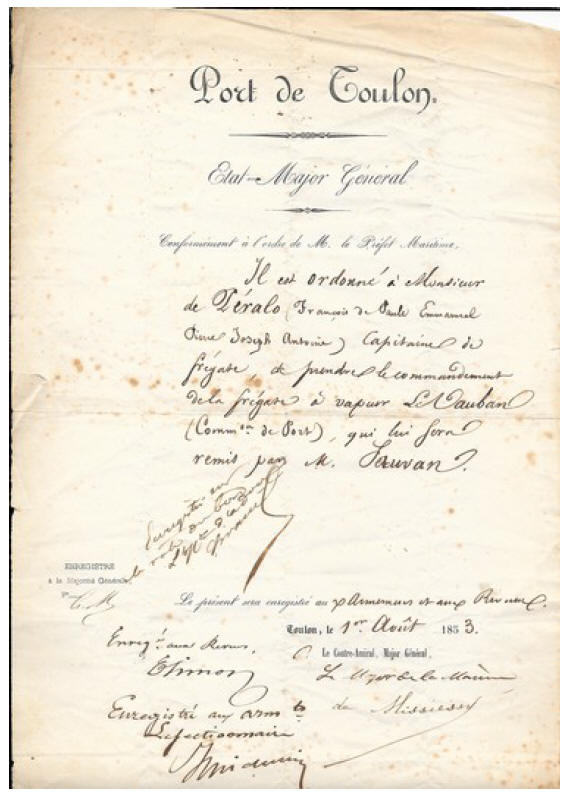 Port de Toulon.
Etat-Major Général
Conformément à l'ordre de M. le Préfet Maritime,
Il est ordonné à Monsieur
de Péralo (François de Paule Emmanuel
Pierre Joseph Antoine) Capitaine de
frégate, de prendre le commandement
de la frégate à vapeur Le Vauban
(Comm.on de Port), qui lui sera
remis par M. Jauvan.
Enregistré au
ENREGISTRÉ
à la Majorité Générale,
Le présent sera enregistré aux Armemens et aux Revues.
Toulon, le 1er Août 1853.
Le Contre-Amiral, Major Général,
Enregé aux Revues,
Le Major de la Marine
de Missiessy
Enregistré aux armts